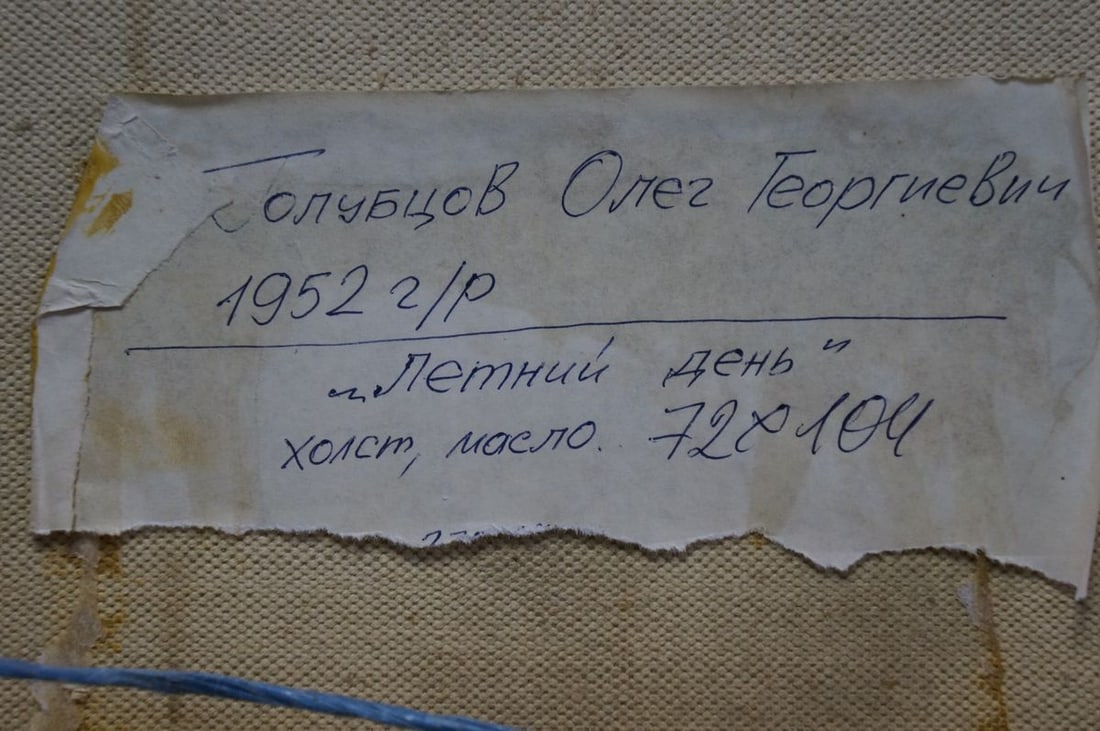 Голубцов Олег Георгиевич
1952 г/р
„Летний день"
холст, масло. 72х104